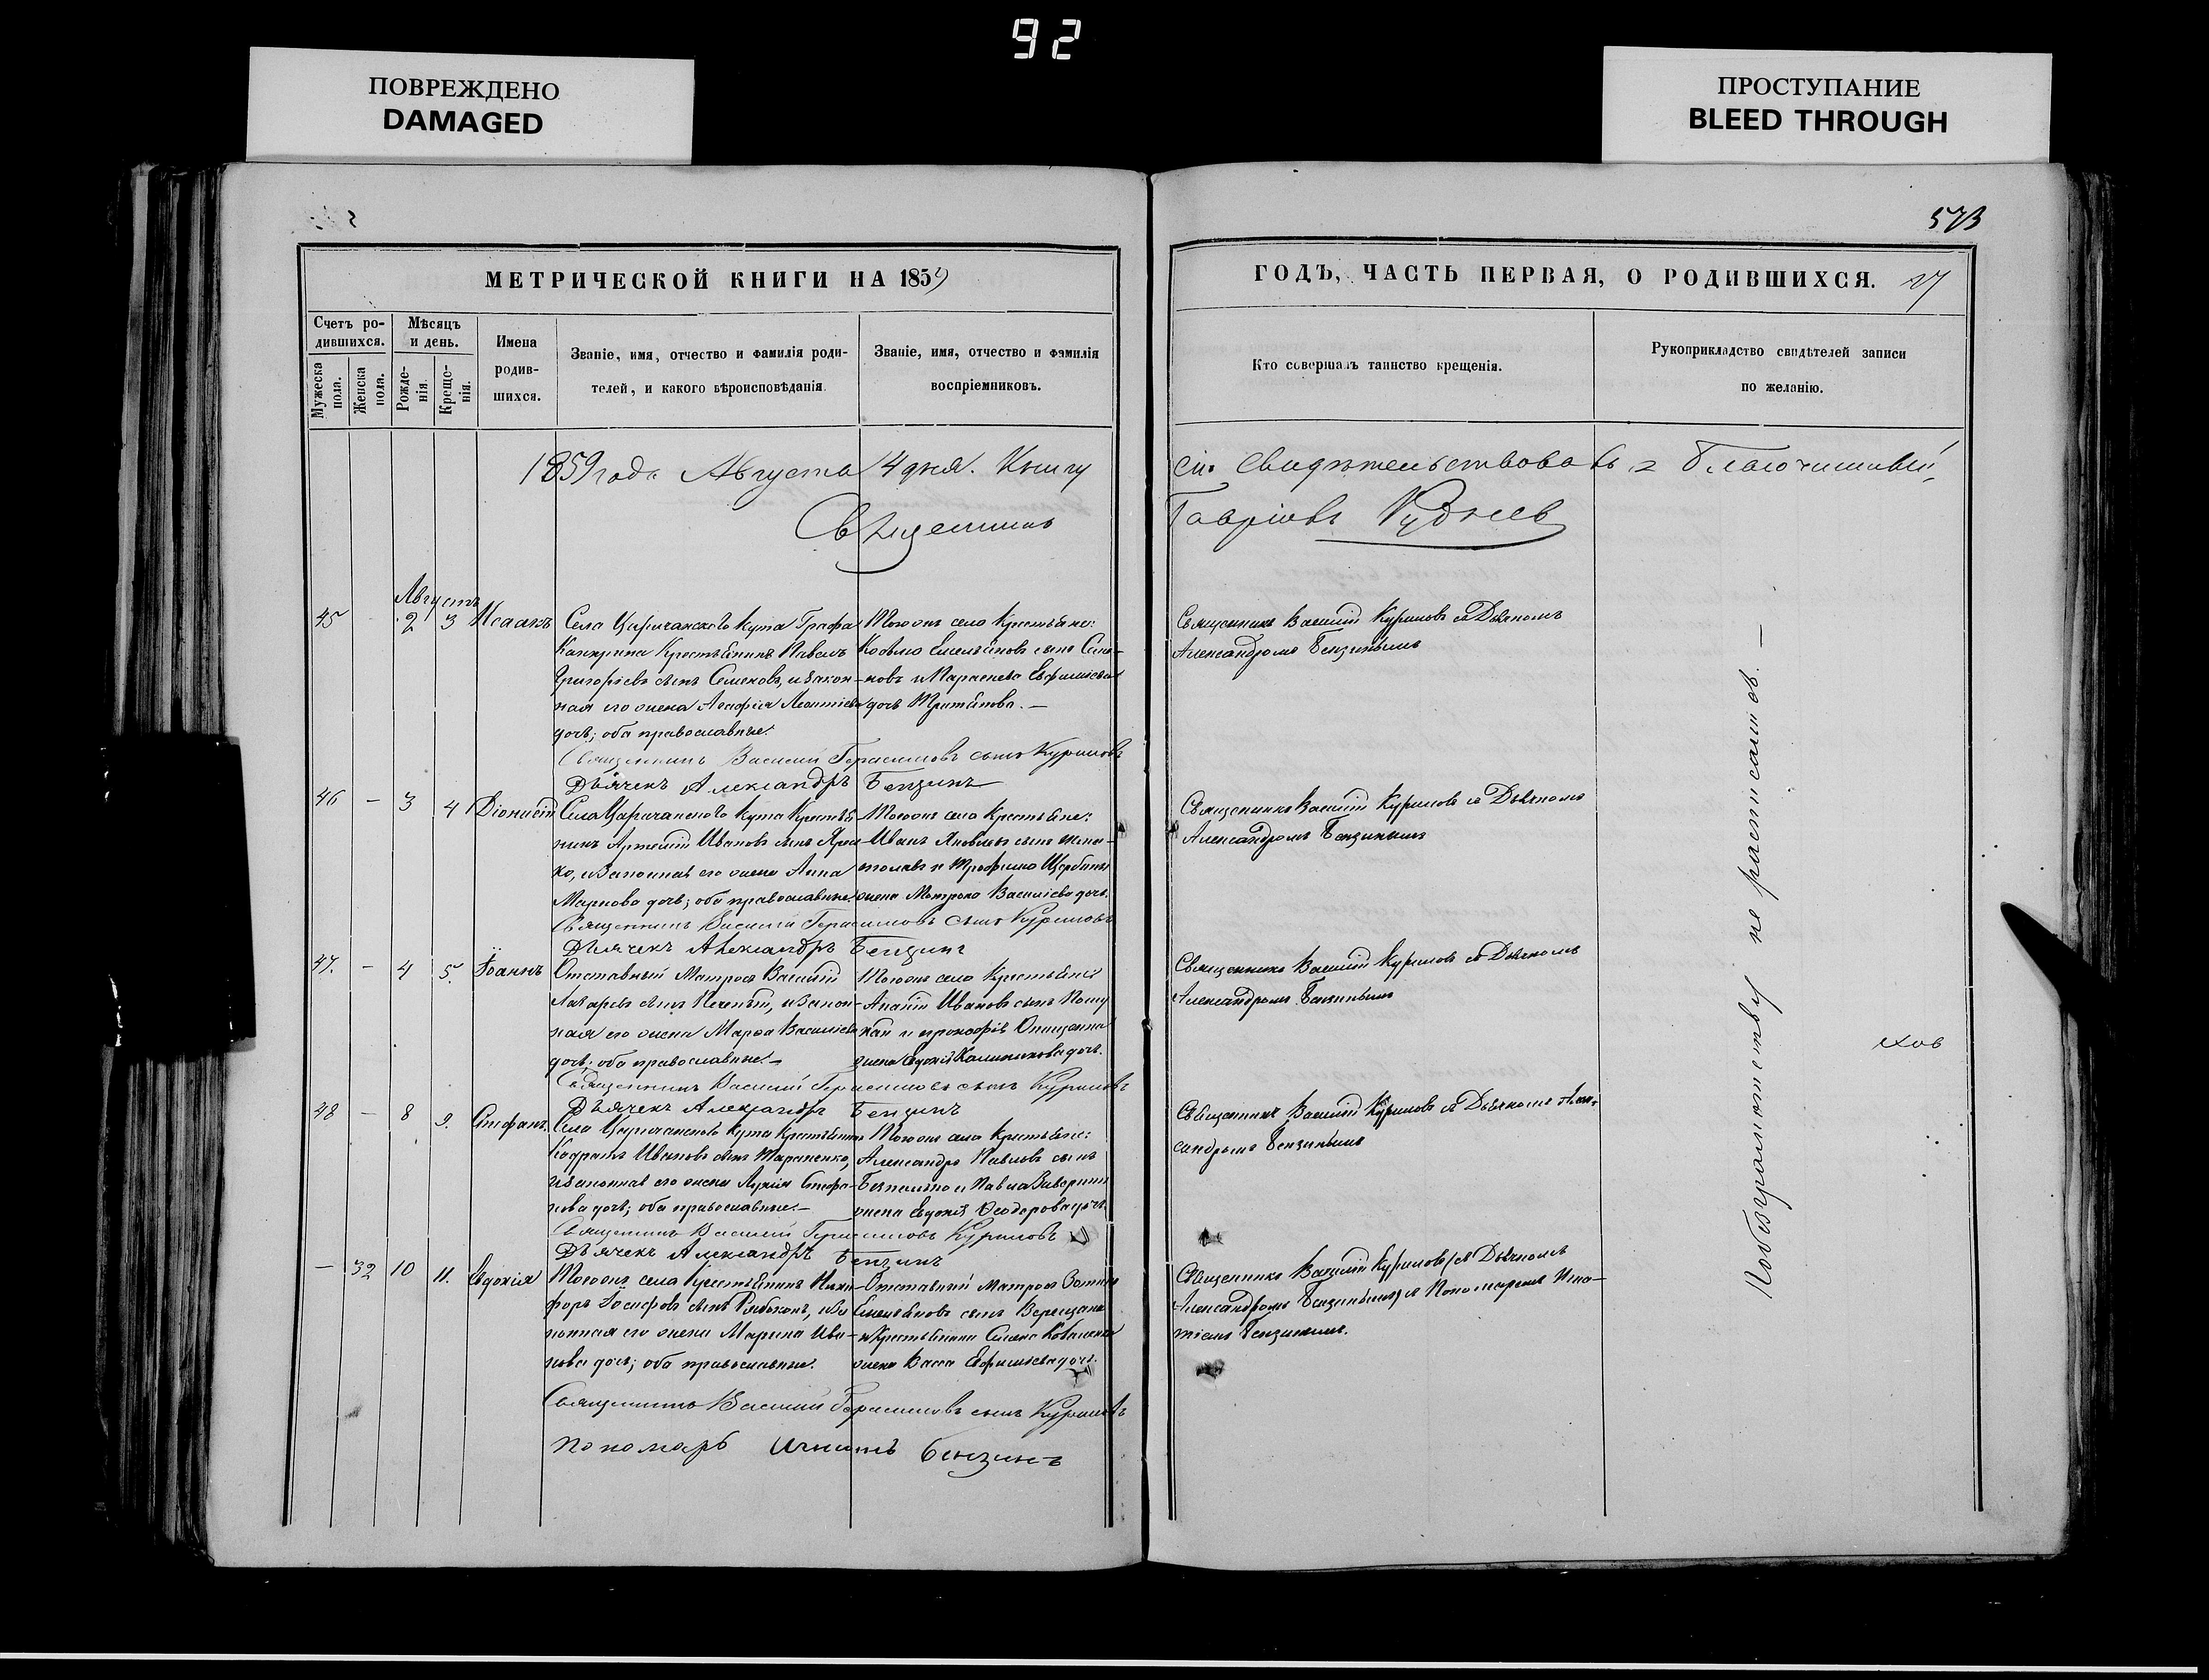 92
ПОВРЕЖДЕНО
DAMAGED
ПРОСТУПАНИЕ
BLEED THROUGH
573
МЕТРИЧЕСКОЙ КНИГИ НА 1859
Счетъ ро-
дившихся.
Мужеска пола.
Женска пола.
Мѣсяцъ
и день.
Рожде-
нія.
Креще-
нія.
Имена
родив-
шихся.
Званіе, имя, отчество и фамилія роди-
телей, и какого вѣроисповѣданія
Званіе, имя, отчество и фамилія
воспріемниковъ.
ГОДЪ, ЧАСТЬ ПЕРВАЯ, О РОДИВШИХСЯ.
Кто совершалъ таинство крещенія.
Рукоприкладство свидѣтелей записи
по желанію.
1859 года Августа 4 дня. Книгу сію свидѣтельствовалъ Благочинный,
Священникъ Гавріилъ
Августъ
45 2 3 Исаакъ
Села Царичанскаго Кута Графа
Канкрина Крестьянинъ Павелъ
Григорьевъ сынъ Семеновъ, и закон-
ная его жена Агафія Леонтіева
дочь; оба православные.
Тогожъ села Крестьяне:
Козьма Емельяновъ сынъ Семе-
новъ и Ефиміева
дочь
Священникъ Василій Куриловъ съ Дьячкомъ
Александромъ Бензинымъ
Священникъ Василій Герасимовъ сынъ Куриловъ
Дьячекъ Александръ Бензинъ
46 — 3 4 Діонисій
Села Царичанскаго Кута Крестья-
нинъ Артемій Ивановъ сынъ
ко, и законная его жена Анна
Маркова дочь; оба православные.
Тогожъ села Крестьяне:
Иванъ Яковлевъ сынъ
и Трофима Щербины
жена Матрона Василіева дочь.
Священникъ Василій Куриловъ съ Дьячкомъ
Александромъ Бензинымъ
Священникъ Василій Герасимовъ сынъ Куриловъ
Дьячекъ Александръ Бензинъ
47. — 4 5. Іоаннъ
Отставный Матросъ Василій
Лазаревъ сынъ и закон-
ная его жена Марѳа Василіева
дочь; оба православные. —
Тогожъ села Крестьяне:
Ананій Ивановъ сынъ
и Прокофія Онищенка
жена Евдокія Калиникова дочь.
Священникъ Василій Куриловъ съ Дьячкомъ
Александромъ Бензинымъ
Священникъ Василій Герасимовъ сынъ Куриловъ
Дьячекъ Александръ Бензинъ
48 — 8 9. Стефанъ
Села Царичанскаго Кута Крестьянинъ
Кодратъ Ивановъ сынъ Тараненко,
и законная его жена Стефа-
нова дочь; оба православные. —
Тогожъ села Крестьяне:
Александръ Павловъ сынъ
и Павла
жена Евдокія Ѳеодорова дочь.
Священникъ Василій Куриловъ съ Дьячкомъ Алек-
сандромъ Бензинымъ
Священникъ Василій Герасимовъ Куриловъ
Дьячекъ Александръ Бензинъ
— 32 10 11. Евдокія
Тогожъ села Крестьянинъ Ники-
форъ Іосифовъ сынъ Рябоконь, и за-
конная его жена Марина Ива-
нова дочь; оба православные.
Отставный Матросъ
Емельяновъ сынъ Верещака
и Крестьянина Семена Коваленка
жена Васса Ефиміева дочь.
Священникъ Василій Куриловъ съ Дьячкомъ
Александромъ Бензинымъ и Пономаремъ Игна-
тіемъ Бензинымъ.
Священникъ Василій Герасимовъ сынъ Куриловъ
Пономарь Игнатъ Бензинъ
По безграмотству не росписались. —